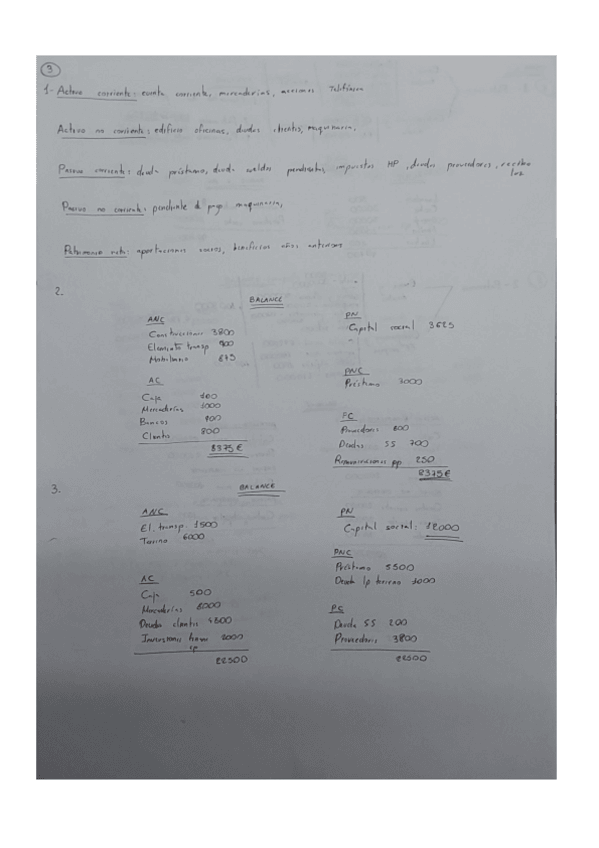 3
1- Activo corriente: cuenta corriente, mercaderías, acciones Telefónica
Activo no corriente: edificio oficinas, deudas clientes, maquinaria,
Pasivo corriente: deuda préstamo, deuda sueldos pendientes, impuestos HP, deudas proveedores, recibo
luz
Pasivo no corriente: pendiente de pago maquinaria,
Patrimonio neto: aportaciones socios, beneficios años anteriores
2.
BALANCE
ANC
Construcciones 3800
Elemento transp. 900
Mobiliario 675
AC
Caja
Mercaderías
Bancos
Clientes 800
8375€
PN
Capital social 3625
PNC
Préstamo 3000
PC
Proveedores 800
Deudas SS 700
Remuneraciones pp 250
8375€
3.
BALANCE
ANC
El. transp. 1500
Terreno 6000
AC
Caja 500
Mercaderías 8000
Deuda clientes 4800
Inversiones
sp
22500
PN
Capital social:
PNC
Préstamo 5500
Deuda lp terreno
PC
Deuda SS 200
Proveedores 3800
22500